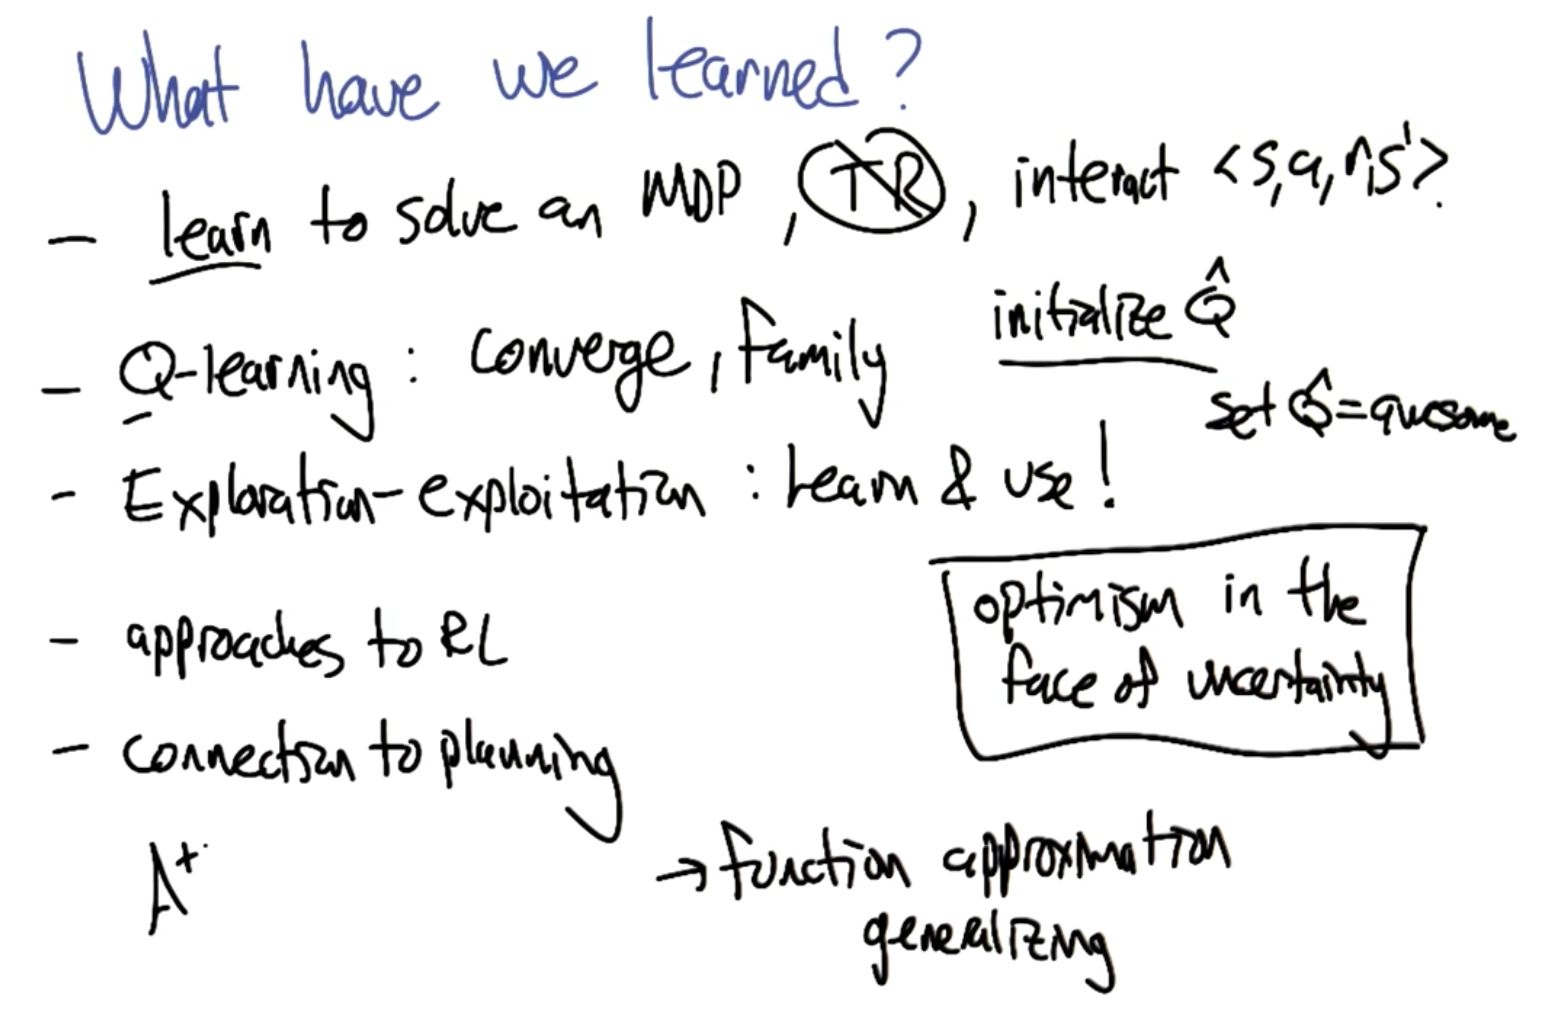 What have we learned?
- learn to solve an MDP, TR, interact <s,a,r,s'>.
- Q-learning: converge, family
initialize Q̂
set Q̂=awesome
- Exploration-exploitation: learn & use!
optimism in the
face of uncertainty
- approaches to RL
- connection to planning
A*
→ function approximation
generalizing